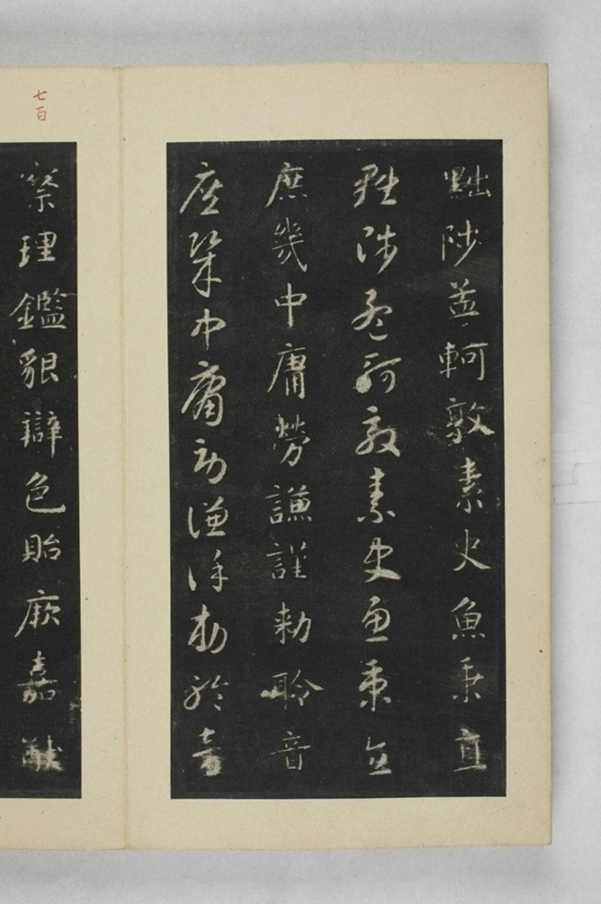 黜陟孟軻敦素史魚秉直
黜陟孟軻敦素史魚秉直
庶幾中庸勞謙謹勅聆音
庶幾中庸勞謙謹勅聆音
七百
察理鑑貌辯色貽厥嘉猷